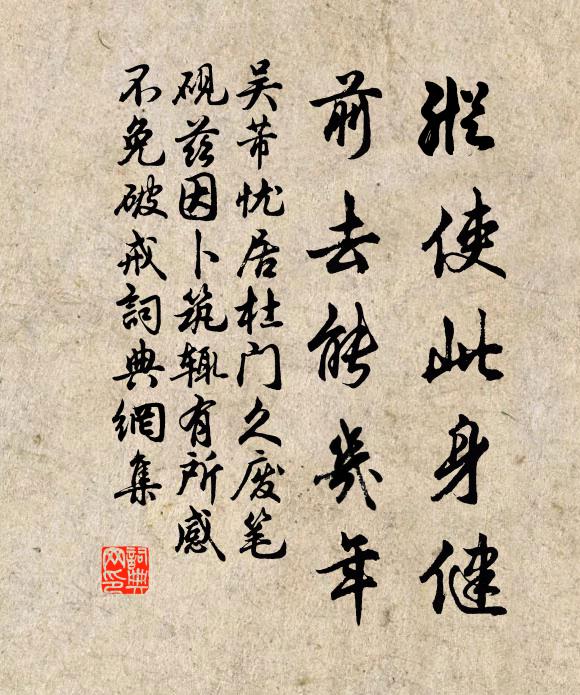 縱使此身健
前去能幾年
吴芾忧居杜门久废笔
砚兹因卜筑辄有所感
不免破戒詞典網集
詞典网印